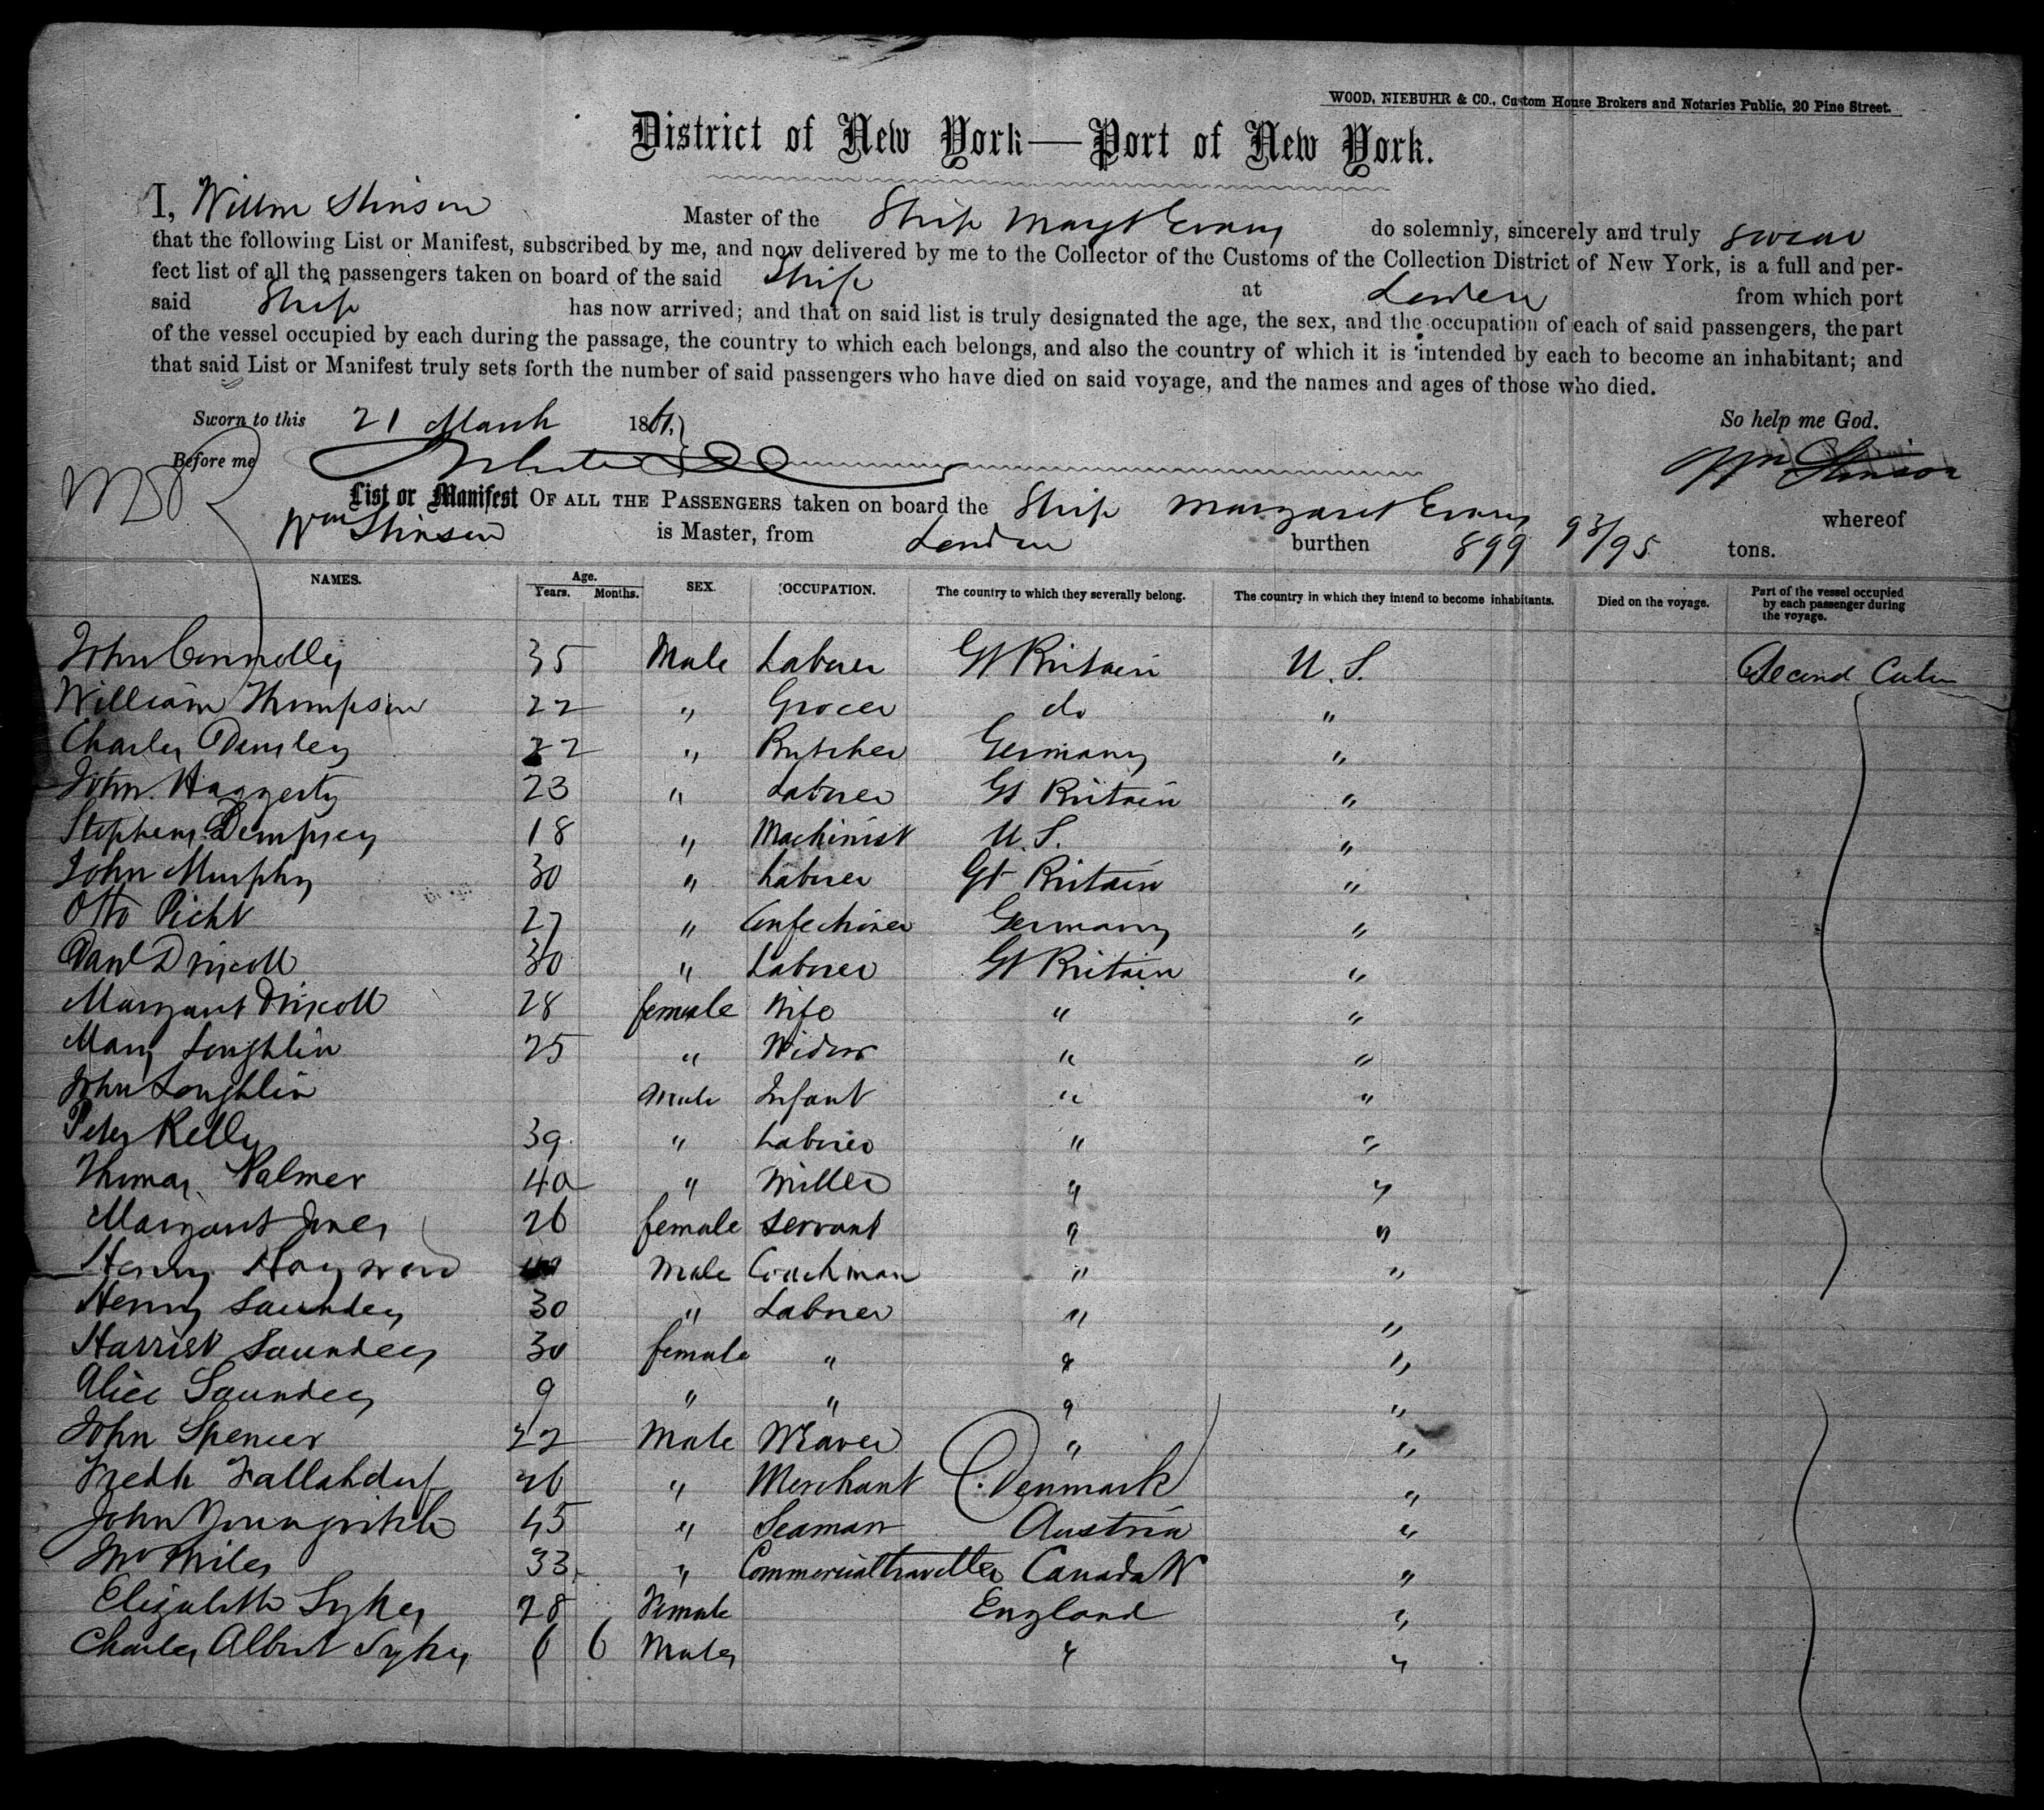 WOOD, NIEBUHR & CO., Custom House Brokers and Notaries Public, 20 Pine Street.
District of New York—Port of New York.
I, Willm Stinson Master of the Ship Margt Evans do solemnly, sincerely and truly swear
that the following List or Manifest, subscribed by me, and now delivered by me to the Collector of the Customs of the Collection District of New York, is a full and per-
fect list of all the passengers taken on board of the said Ship at London from which port
said Ship has now arrived; and that on said list is truly designated the age, the sex, and the occupation of each of said passengers, the part
of the vessel occupied by each during the passage, the country to which each belongs, and also the country of which it is intended by each to become an inhabitant; and
that said List or Manifest truly sets forth the number of said passengers who have died on said voyage, and the names and ages of those who died.
Sworn to this 21 March 1861. So help me God.
Before me Wm Stinson
List or Manifest OF ALL THE PASSENGERS taken on board the Ship Margaret Evans whereof
Wm Stinson is Master, from London burthen 899 93/95 tons.
NAMES. Age. Years. Months. SEX. OCCUPATION. The country to which they severally belong. The country in which they intend to become inhabitants. Died on the voyage. Part of the vessel occupied by each passenger during the voyage.
John Connolly 35 Male Laborer Gt Britain U.S. Second Cabin
William Thompson 22 " Grocer do "
Charles 22 " Butcher Germany "
John Haggerty 23 " Laborer Gt Britain "
Stephen Dempsey 18 " Machinist U.S. "
John Murphy 30 " Laborer Gt Britain "
Otto Picht 27 " Confectioner Germany "
Danl Driscoll 30 " Laborer Gt Britain "
Margaret Driscoll 28 female Wife " "
Mary Loughlin 25 " Widow " "
John Loughlin Male Infant " "
Peter Kelly 39 " Laborer " "
Thomas Palmer 40 " Miller " "
Margaret Jones 26 female Servant " "
Henry Hayward Male Coachman " "
Henry Saunders 30 " Laborer " "
Harriet Saunders 30 female " " "
Alice Saunders 9 " " " "
John Spencer 22 Male Weaver " "
Fredk 26 " Merchant Denmark "
John 45 " Seaman Austria "
Miles 33 " Commercial traveller Canada W "
Elizabeth Sykes 28 Female England "
Charles Albert Sykes 6 Male " "